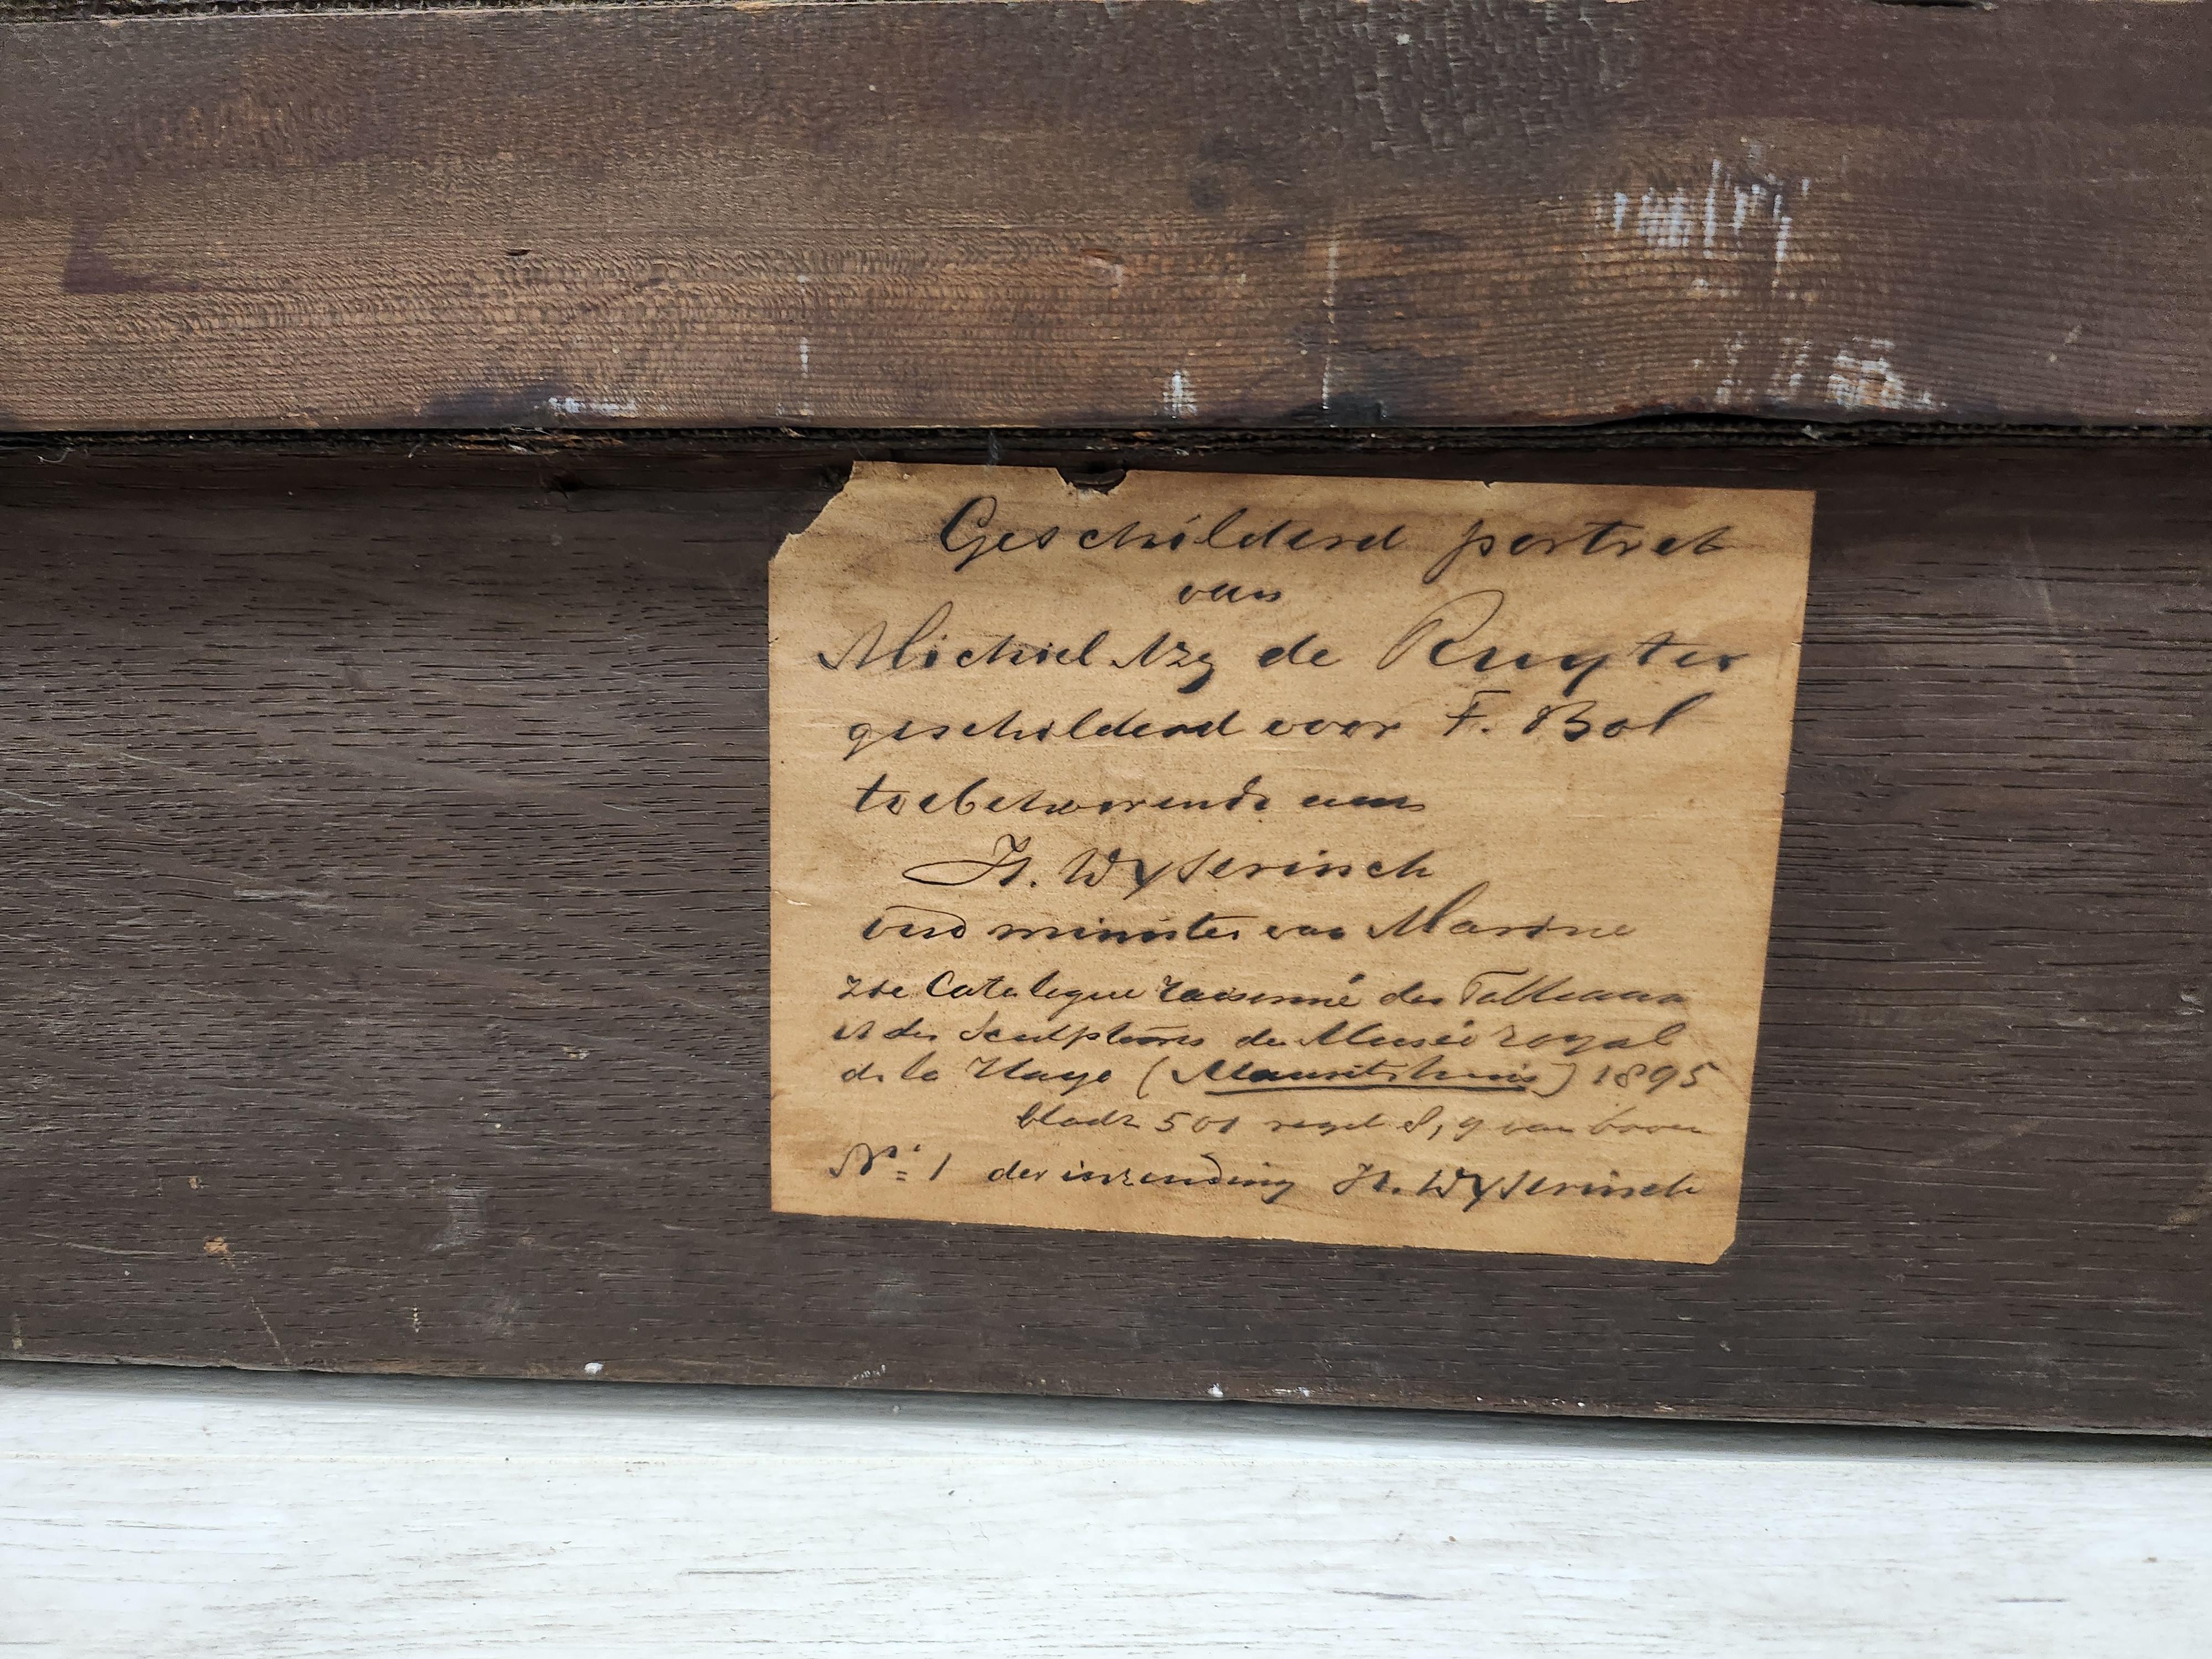 Geschilderd portret
van
Michiel Azg de Ruyter
geschilderd voor F. Bol
toebehoorende aan
H. Wyserinsch
oud minister van Marine
zie Catalogue raisonné des Tableaux
et des Sculptures du Musée royal
de la Haye (Mauritshuis) 1895
bladz 501 regel 8, 9 van boven
No: 1 der inzending H. Wyserinsch